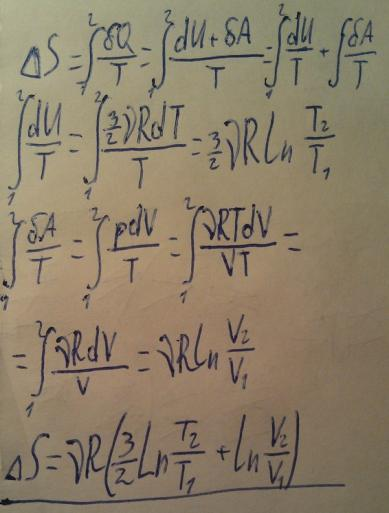 ΔS = ∫₁² δQ/T = ∫₁² (dU + δA)/T = ∫₁² dU/T + ∫ δA/T
∫₁² dU/T = ∫₁² (3/2 νRdT)/T = 3/2 νR ln T₂/T₁
∫₁² δA/T = ∫₁² pdV/T = ∫₁² νRTdV/VT =
= ∫₁² νRdV/V = νR ln V₂/V₁
ΔS = νR(3/2 ln T₂/T₁ + ln V₂/V₁)